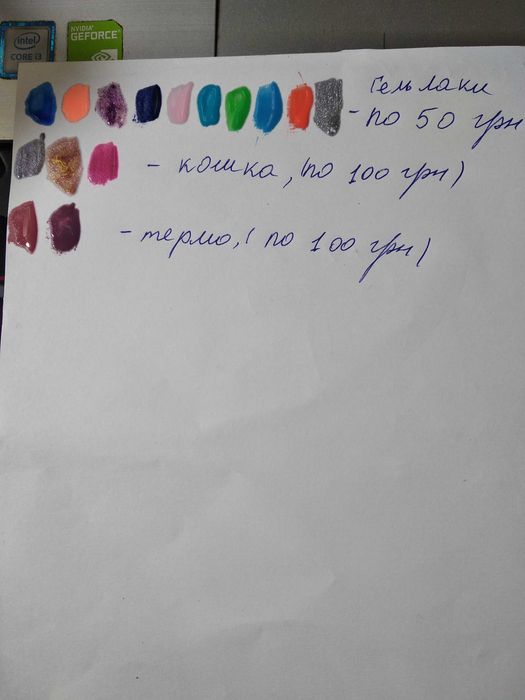 intel
CORE i3
NVIDIA
GEFORCE
Гель лаки
- по 50 грн
- кошка, (по 100 грн)
- термо, ( по 100 грн)